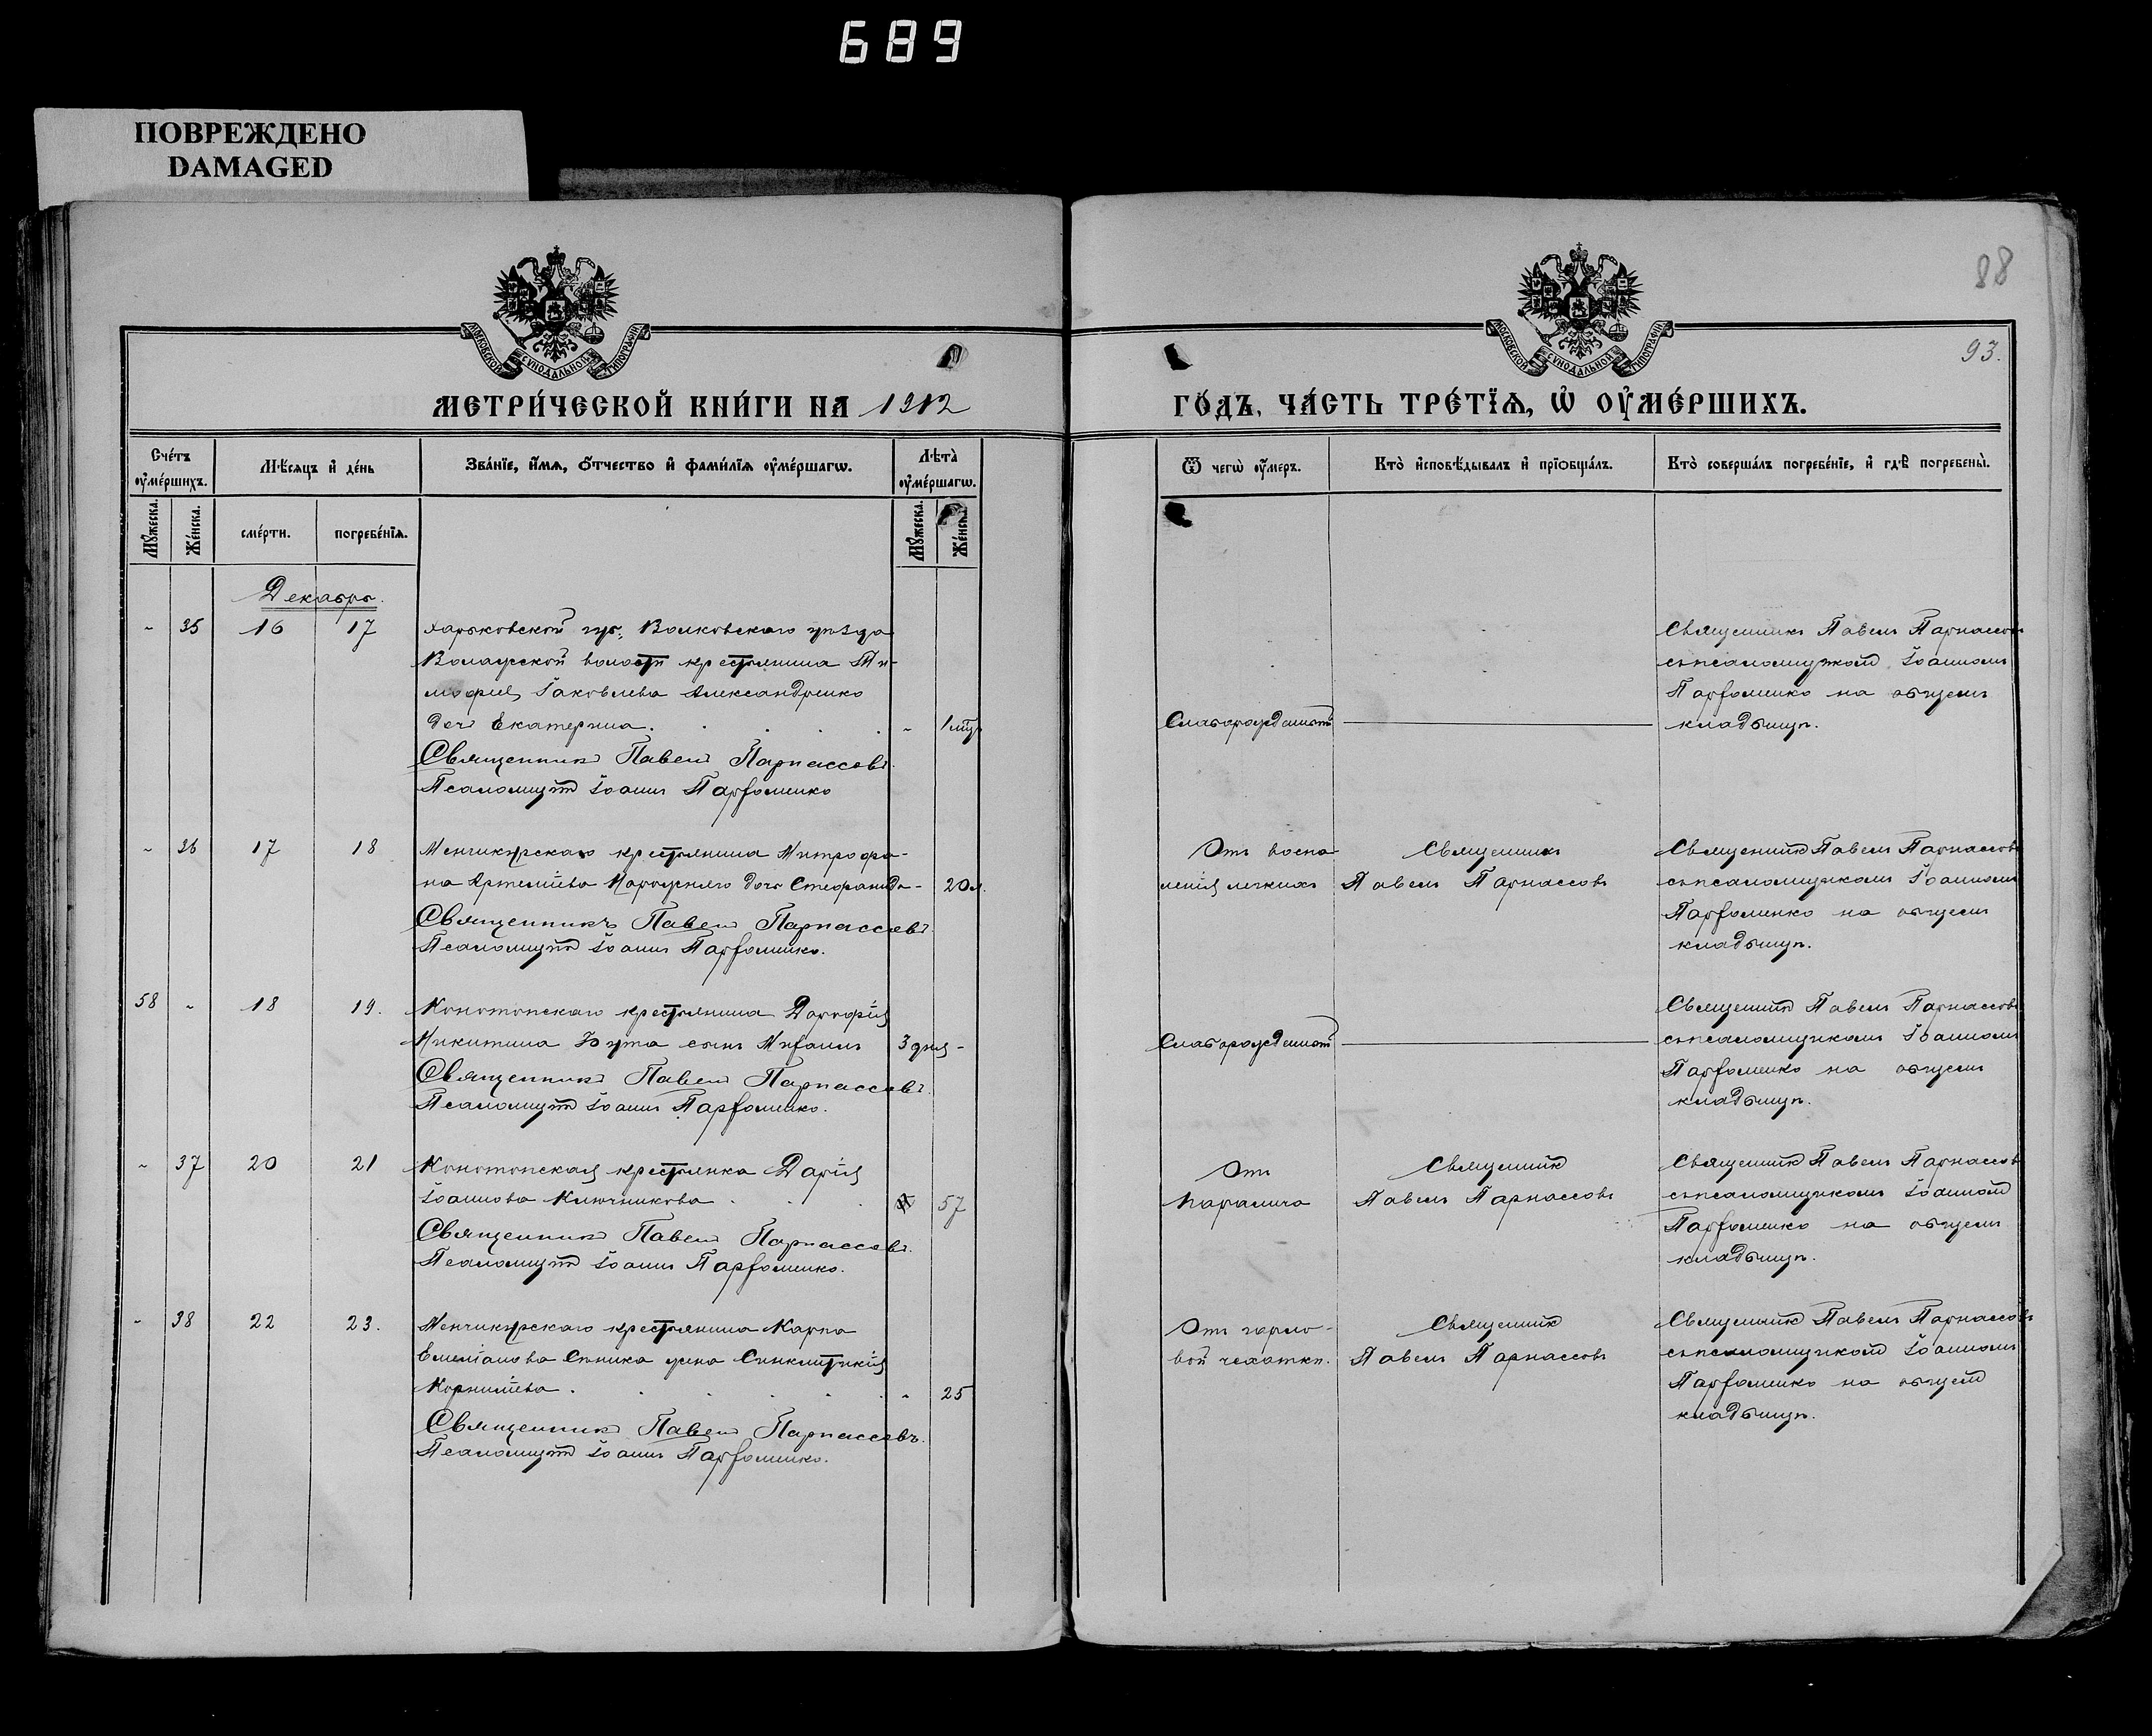 689
ПОВРЕЖДЕНО
DAMAGED
МОСКОВСКОЙ СѴНОДАЛЬНОЙ ТИПОГРАФІИ
МОСКОВСКОЙ СѴНОДАЛЬНОЙ ТИПОГРАФІИ
88
93.
МЕТРИ́ЧЕСКОЙ КНИ́ГИ НА 1912
ГО́ДЪ, ЧА́СТЬ ТРЕ́ТІѦ, Ѡ҆ ОУ҆МЕ́РШИХЪ.
Сче́тъ оу҆ме́ршихъ.
Мѣ́сѧцъ и҆ де́нь
Зва́нїе, и҆́мѧ, ѻ҆́тчество и҆ фами́лїѧ оу҆ме́ршагѡ.
Лѣ̀та оу҆ме́ршагѡ.
Ѿ чегѡ̀ оу҆́меръ.
Кто̀ и҆сповѣ́дывалъ и҆ прїѻбща́лъ.
Кто̀ соверша́лъ погребе́нїе, и҆ гдѣ̀ погребены̀.
Мꙋ́жеска.
Же́нска.
сме́рти.
погребе́нїѧ.
Мꙋ́жеска.
Же́нска.
Декабрь.
- 35 16 17 Харьковской губ. Валковскаго уѣзда
волости крестьянина Ти-
мофея Іаковлева Александренко
дочь Екатерина. - 1 мѣс.
Священникъ Павелъ Парнассовъ.
Псаломщикъ Іоаннъ Пархоменко
Слаборожденность
Священникъ Павелъ Парнассовъ
съ псаломщикомъ Іоанномъ
Пархоменко на общемъ
кладбищѣ.
- 36 17 18 Менчикурскаго крестьянина Митрофа-
на Артеміева дочь Стефанида - 20 л.
Священникъ Павелъ Парнассовъ.
Псаломщикъ Іоаннъ Пархоменко.
Отъ воспа-
ленія легкихъ
Священникъ
Павелъ Парнассовъ
Священникъ Павелъ Парнассовъ
съ псаломщикомъ Іоанномъ
Пархоменко на общемъ
кладбищѣ.
58 - 18 19. Конотопскаго крестьянина Дорофія
Никитина сынъ Михаилъ 3 дня -
Священникъ Павелъ Парнассовъ.
Псаломщикъ Іоаннъ Пархоменко.
Слаборожденность
Священникъ Павелъ Парнассовъ
съ псаломщикомъ Іоанномъ
Пархоменко на общемъ
кладбищѣ.
- 37 20 21 Конотопская крестьянка Дарія
Іоаннова Ключникова 57
Священникъ Павелъ Парнассовъ.
Псаломщикъ Іоаннъ Пархоменко.
Отъ
паралича
Священникъ
Павелъ Парнассовъ
Священникъ Павелъ Парнассовъ
съ псаломщикомъ Іоанномъ
Пархоменко на общемъ
кладбищѣ.
- 38 22 23. Менчикурскаго крестьянина Карпа
Емеліанова жена Синклитикія
Корниліева. - 25
Священникъ Павелъ Парнассовъ.
Псаломщикъ Іоаннъ Пархоменко.
Отъ горло-
вой чахотки.
Священникъ
Павелъ Парнассовъ
Священникъ Павелъ Парнассовъ
съ псаломщикомъ Іоанномъ
Пархоменко на общемъ
кладбищѣ.